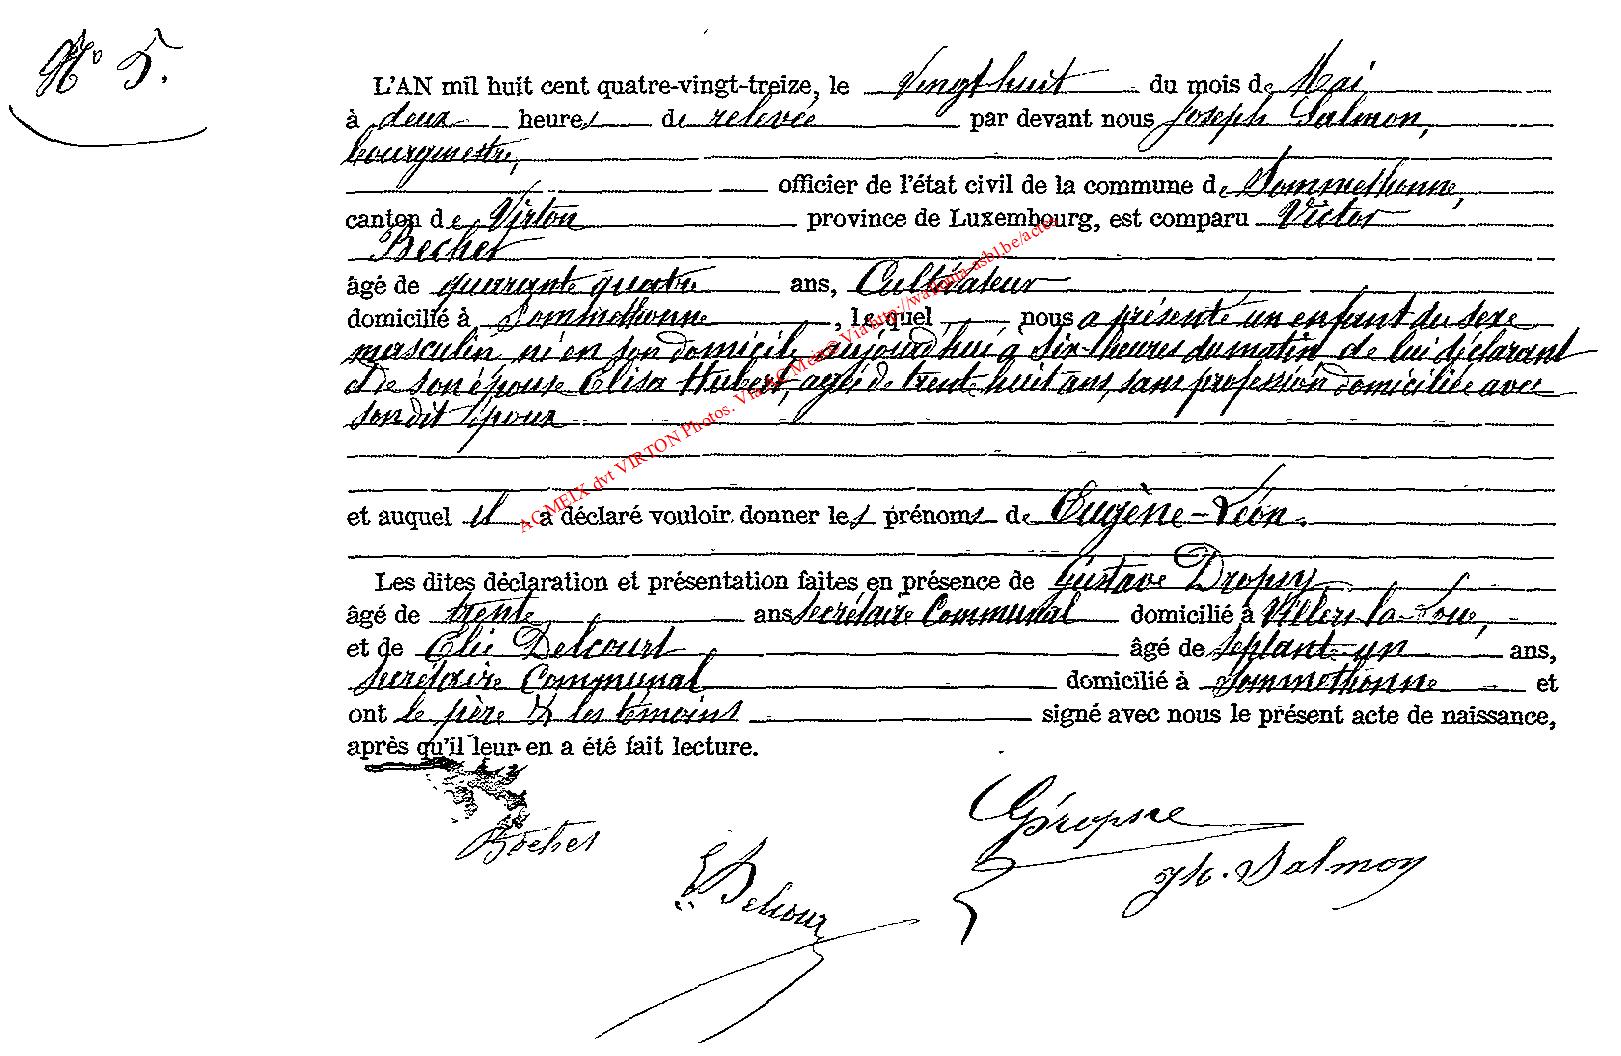 N° 5.
L'AN mil huit cent quatre-vingt-treize, le Vingt huit du mois de Mai
à deux heures de relevée par devant nous Joseph Salmon,
bourgmestre,
officier de l'état civil de la commune de Sommethonne,
canton de Virton province de Luxembourg, est comparu Victor
Becher
âgé de quarante quatre ans, Cultivateur
domicilié à Sommethonne, lequel nous a présenté un enfant du sexe
masculin né en son domicile aujourd'hui à six heures du matin de lui déclarant
et de son épouse Elisa Hubert, agée de trente huit ans, sans profession domiciliée avec
son dit époux
et auquel il a déclaré vouloir donner les prénoms de Eugène-Léon.
Les dites déclaration et présentation faites en présence de Gustave Dropsy
âgé de trente ans Secrétaire Communal domicilié à Villers la-Loue,
et de Elie Delcourt âgé de septante un ans,
secrétaire Communal domicilié à Sommethonne et
ont le père & les témoins signé avec nous le présent acte de naissance,
après qu'il leur en a été fait lecture.
AC MEIX dvt VIRTON Photos. Via AC Meix Via http://wallonia-asbl.be/actes
Becher
E Delcour
GDropsy
Jh. Salmon